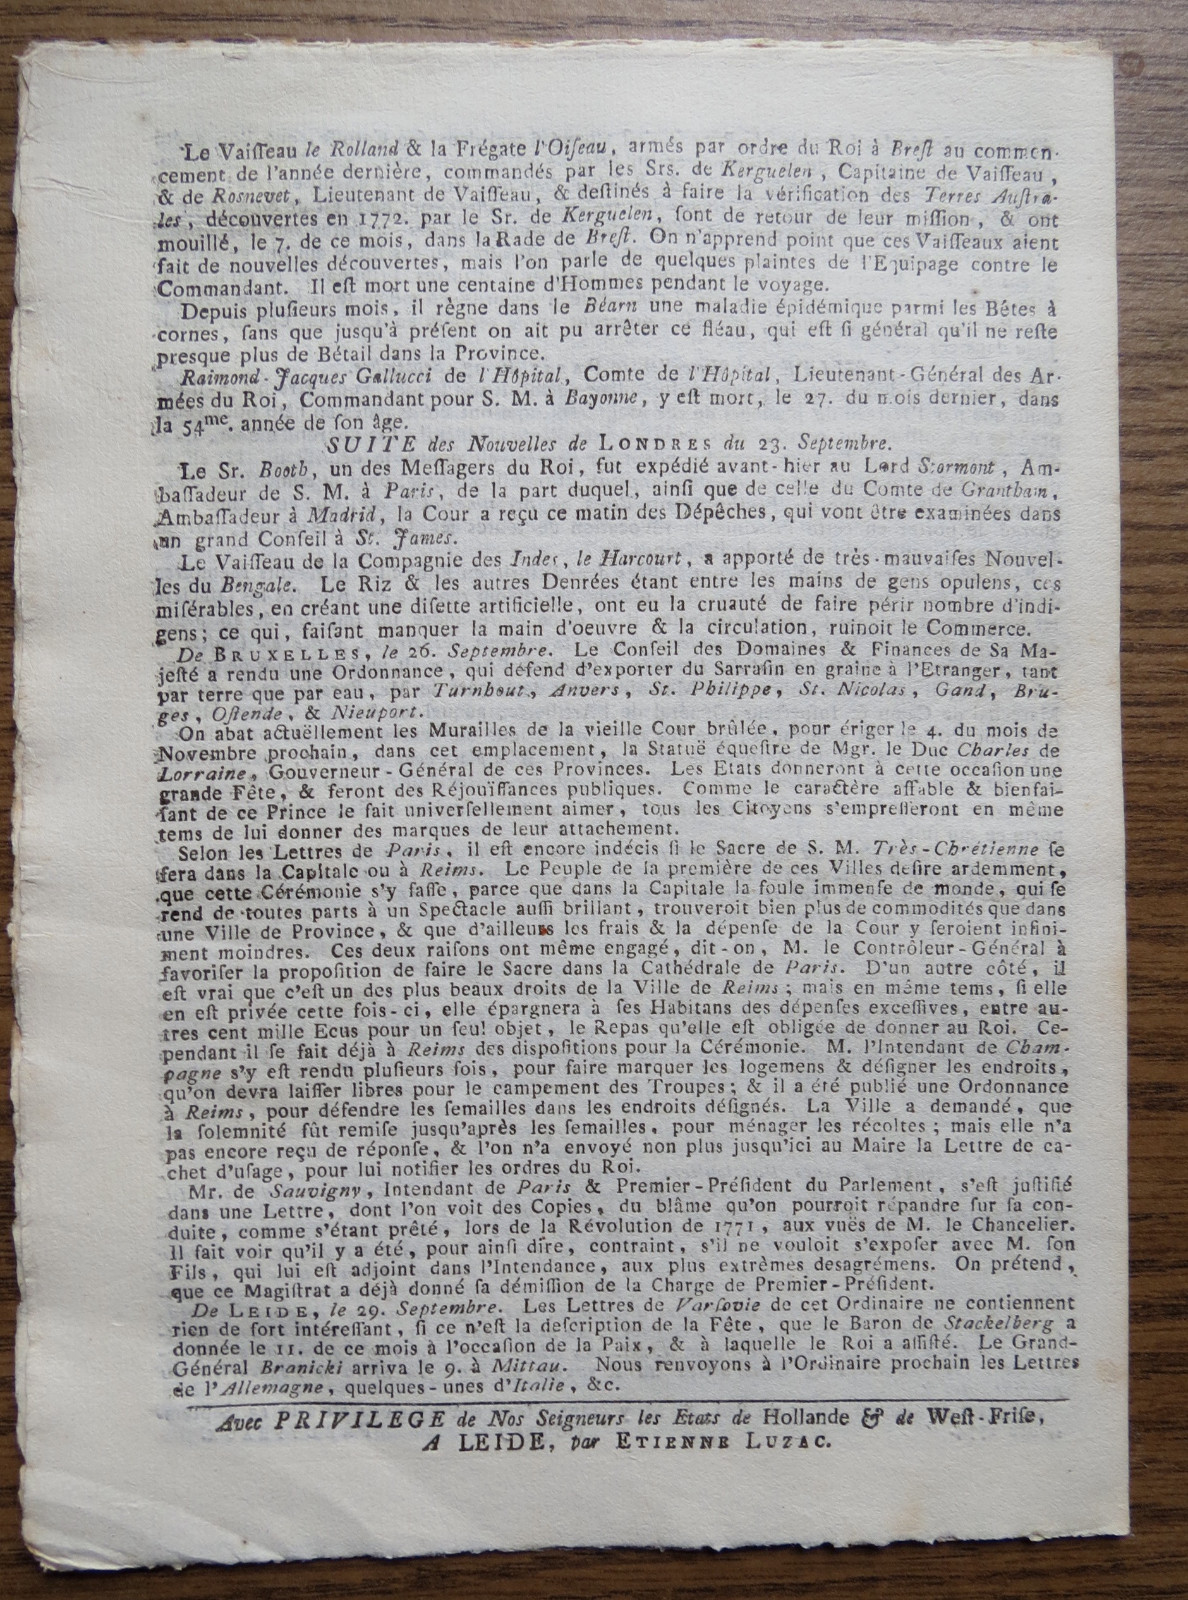 Le Vaiſſeau le Rolland & la Frégate l'Oiſeau, armés par ordre du Roi à Breſt au commen-
cement de l'année dernière, commandés par les Srs. de Kerguelen, Capitaine de Vaiſſeau,
& de Rosnevet, Lieutenant de Vaiſſeau, & deſtinés à faire la vérification des Terres Auſtra-
les, découvertes en 1772. par le Sr. de Kerguelen, ſont de retour de leur miſſion, & ont
mouillé, le 7. de ce mois, dans la Rade de Breſt. On n'apprend point que ces Vaiſſeaux aient
fait de nouvelles découvertes, mais l'on parle de quelques plaintes de l'Equipage contre le
Commandant. Il eſt mort une centaine d'Hommes pendant le voyage.
Depuis pluſieurs mois, il règne dans le Béarn une maladie épidémique parmi les Bêtes à
cornes, ſans que jusqu'à préſent on ait pu arrêter ce fléau, qui eſt ſi général qu'il ne reſte
presque plus de Bétail dans la Province.
Raimond-Jacques Gallucci de l'Hôpital, Comte de l'Hôpital, Lieutenant-Général des Ar-
mées du Roi, Commandant pour S. M. à Bayonne, y eſt mort, le 27. du mois dernier, dans
la 54me. année de ſon âge.
SUITE des Nouvelles de LONDRES du 23. Septembre.
Le Sr. Booth, un des Meſſagers du Roi, fut expédié avant-hier au Lord Stormont, Am-
baſſadeur de S. M. à Paris, de la part duquel, ainſi que de celle du Comte de Grantham,
Ambaſſadeur à Madrid, la Cour a reçu ce matin des Dépêches, qui vont être examinées dans
un grand Conſeil à St. James.
Le Vaiſſeau de la Compagnie des Indes, le Harcourt, a apporté de très-mauvaiſes Nouvel-
les du Bengale. Le Riz & les autres Denrées étant entre les mains de gens opulens, ces
miſérables, en créant une diſette artificielle, ont eu la cruauté de faire périr nombre d'indi-
gens; ce qui, faiſant manquer la main d'oeuvre & la circulation, ruinoit le Commerce.
De BRUXELLES, le 26. Septembre. Le Conſeil des Domaines & Finances de Sa Ma-
jeſté a rendu une Ordonnance, qui défend d'exporter du Sarraſin en graine à l'Etranger, tant
par terre que par eau, par Turnhout, Anvers, St. Philippe, St. Nicolas, Gand, Bru-
ges, Oſtende, & Nieuport.
On abat actuëllement les Murailles de la vieille Cour brûlée, pour ériger le 4. du mois de
Novembre prochain, dans cet emplacement, la Statuë équeſtre de Mgr. le Duc Charles de
Lorraine, Gouverneur-Général de ces Provinces. Les Etats donneront à cette occaſion une
grande Fête, & feront des Réjouïſſances publiques. Comme le caractère affable & bienfai-
ſant de ce Prince le fait univerſellement aimer, tous les Citoyens s'empreſſeront en même
tems de lui donner des marques de leur attachement.
Selon les Lettres de Paris, il eſt encore indécis ſi le Sacre de S. M. Très-Chrétienne ſe
fera dans la Capitale ou à Reims. Le Peuple de la première de ces Villes deſire ardemment,
que cette Cérémonie s'y faſſe, parce que dans la Capitale la foule immenſe de monde, qui ſe
rend de toutes parts à un Spectacle auſſi brillant, trouveroit bien plus de commodités que dans
une Ville de Province, & que d'ailleurs les frais & la dépenſe de la Cour y ſeroient infini-
ment moindres. Ces deux raiſons ont même engagé, dit-on, M. le Contrôleur-Général à
favoriſer la propoſition de faire le Sacre dans la Cathédrale de Paris. D'un autre côté, il
eſt vrai que c'eſt un des plus beaux droits de la Ville de Reims; mais en même tems, ſi elle
en eſt privée cette fois-ci, elle épargnera à ſes Habitans des dépenſes exceſſives, entre au-
tres cent mille Ecus pour un ſeul objet, le Repas qu'elle eſt obligée de donner au Roi. Ce-
pendant il ſe fait déjà à Reims des dispoſitions pour la Cérémonie. M. l'Intendant de Cham-
pagne s'y eſt rendu pluſieurs fois, pour faire marquer les logemens & déſigner les endroits,
qu'on devra laiſſer libres pour le campement des Troupes; & il a été publié une Ordonnance
à Reims, pour défendre les ſemailles dans les endroits déſignés. La Ville a demandé, que
la ſolemnité fût remiſe jusqu'après les ſemailles, pour ménager les récoltes; mais elle n'a
pas encore reçu de réponſe, & l'on n'a envoyé non plus jusqu'ici au Maire la Lettre de ca-
chet d'uſage, pour lui notifier les ordres du Roi.
Mr. de Sauvigny, Intendant de Paris & Premier-Préſident du Parlement, s'eſt juſtifié
dans une Lettre, dont l'on voit des Copies, du blâme qu'on pourroit répandre ſur ſa con-
duite, comme s'étant prêté, lors de la Révolution de 1771, aux vuës de M. le Chancelier.
Il fait voir qu'il y a été, pour ainſi dire, contraint, s'il ne vouloit s'expoſer avec M. ſon
Fils, qui lui eſt adjoint dans l'Intendance, aux plus extrèmes desagrémens. On prétend,
que ce Magiſtrat a déjà donné ſa démiſſion de la Charge de Premier-Préſident.
De LEIDE, le 29. Septembre. Les Lettres de Varſovie de cet Ordinaire ne contiennent
rien de fort intéreſſant, ſi ce n'eſt la deſcription de la Fête, que le Baron de Stackelberg a
donnée le 11. de ce mois à l'occaſion de la Paix, & à laquelle le Roi a aſſiſté. Le Grand-
Général Branicki arriva le 9. à Mittau. Nous renvoyons à l'Ordinaire prochain les Lettres
de l'Allemagne, quelques-unes d'Italie, &c.
Avec PRIVILEGE de Nos Seigneurs les Etats de Hollande & de Weſt-Friſe,
A LEIDE, par ETIENNE LUZAC.